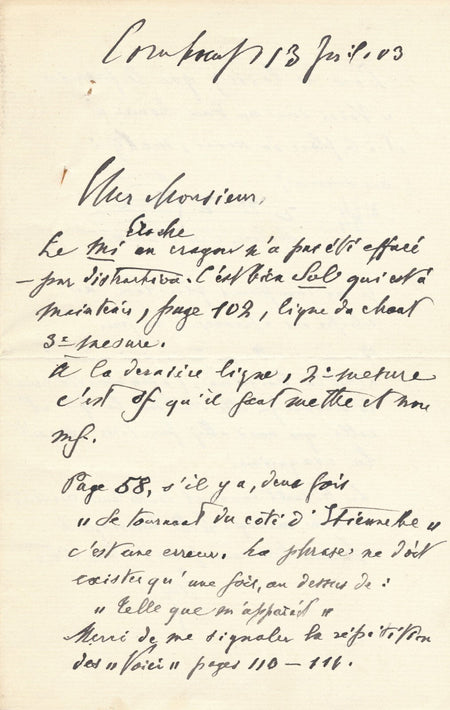 13 Juil. 03
Cher Monsieur,
Croche
Le Mi en crayon n'a pas été effacé
– par distraction. C'est bien Sol qui est à
maintenir, page 102, ligne du chant
3e mesure.
A la dernière ligne, 2e mesure
c'est sf qu'il faut mettre et non
mf.
Page 58, s'il y a, deux fois
"Se tournant du coté d'Etiennette"
c'est une erreur. La phrase ne doit
exister qu'une fois, au dessus de :
"Telle que m'apparait"
Merci de me signaler la répétition
des "Voici" pages 110 – 111.